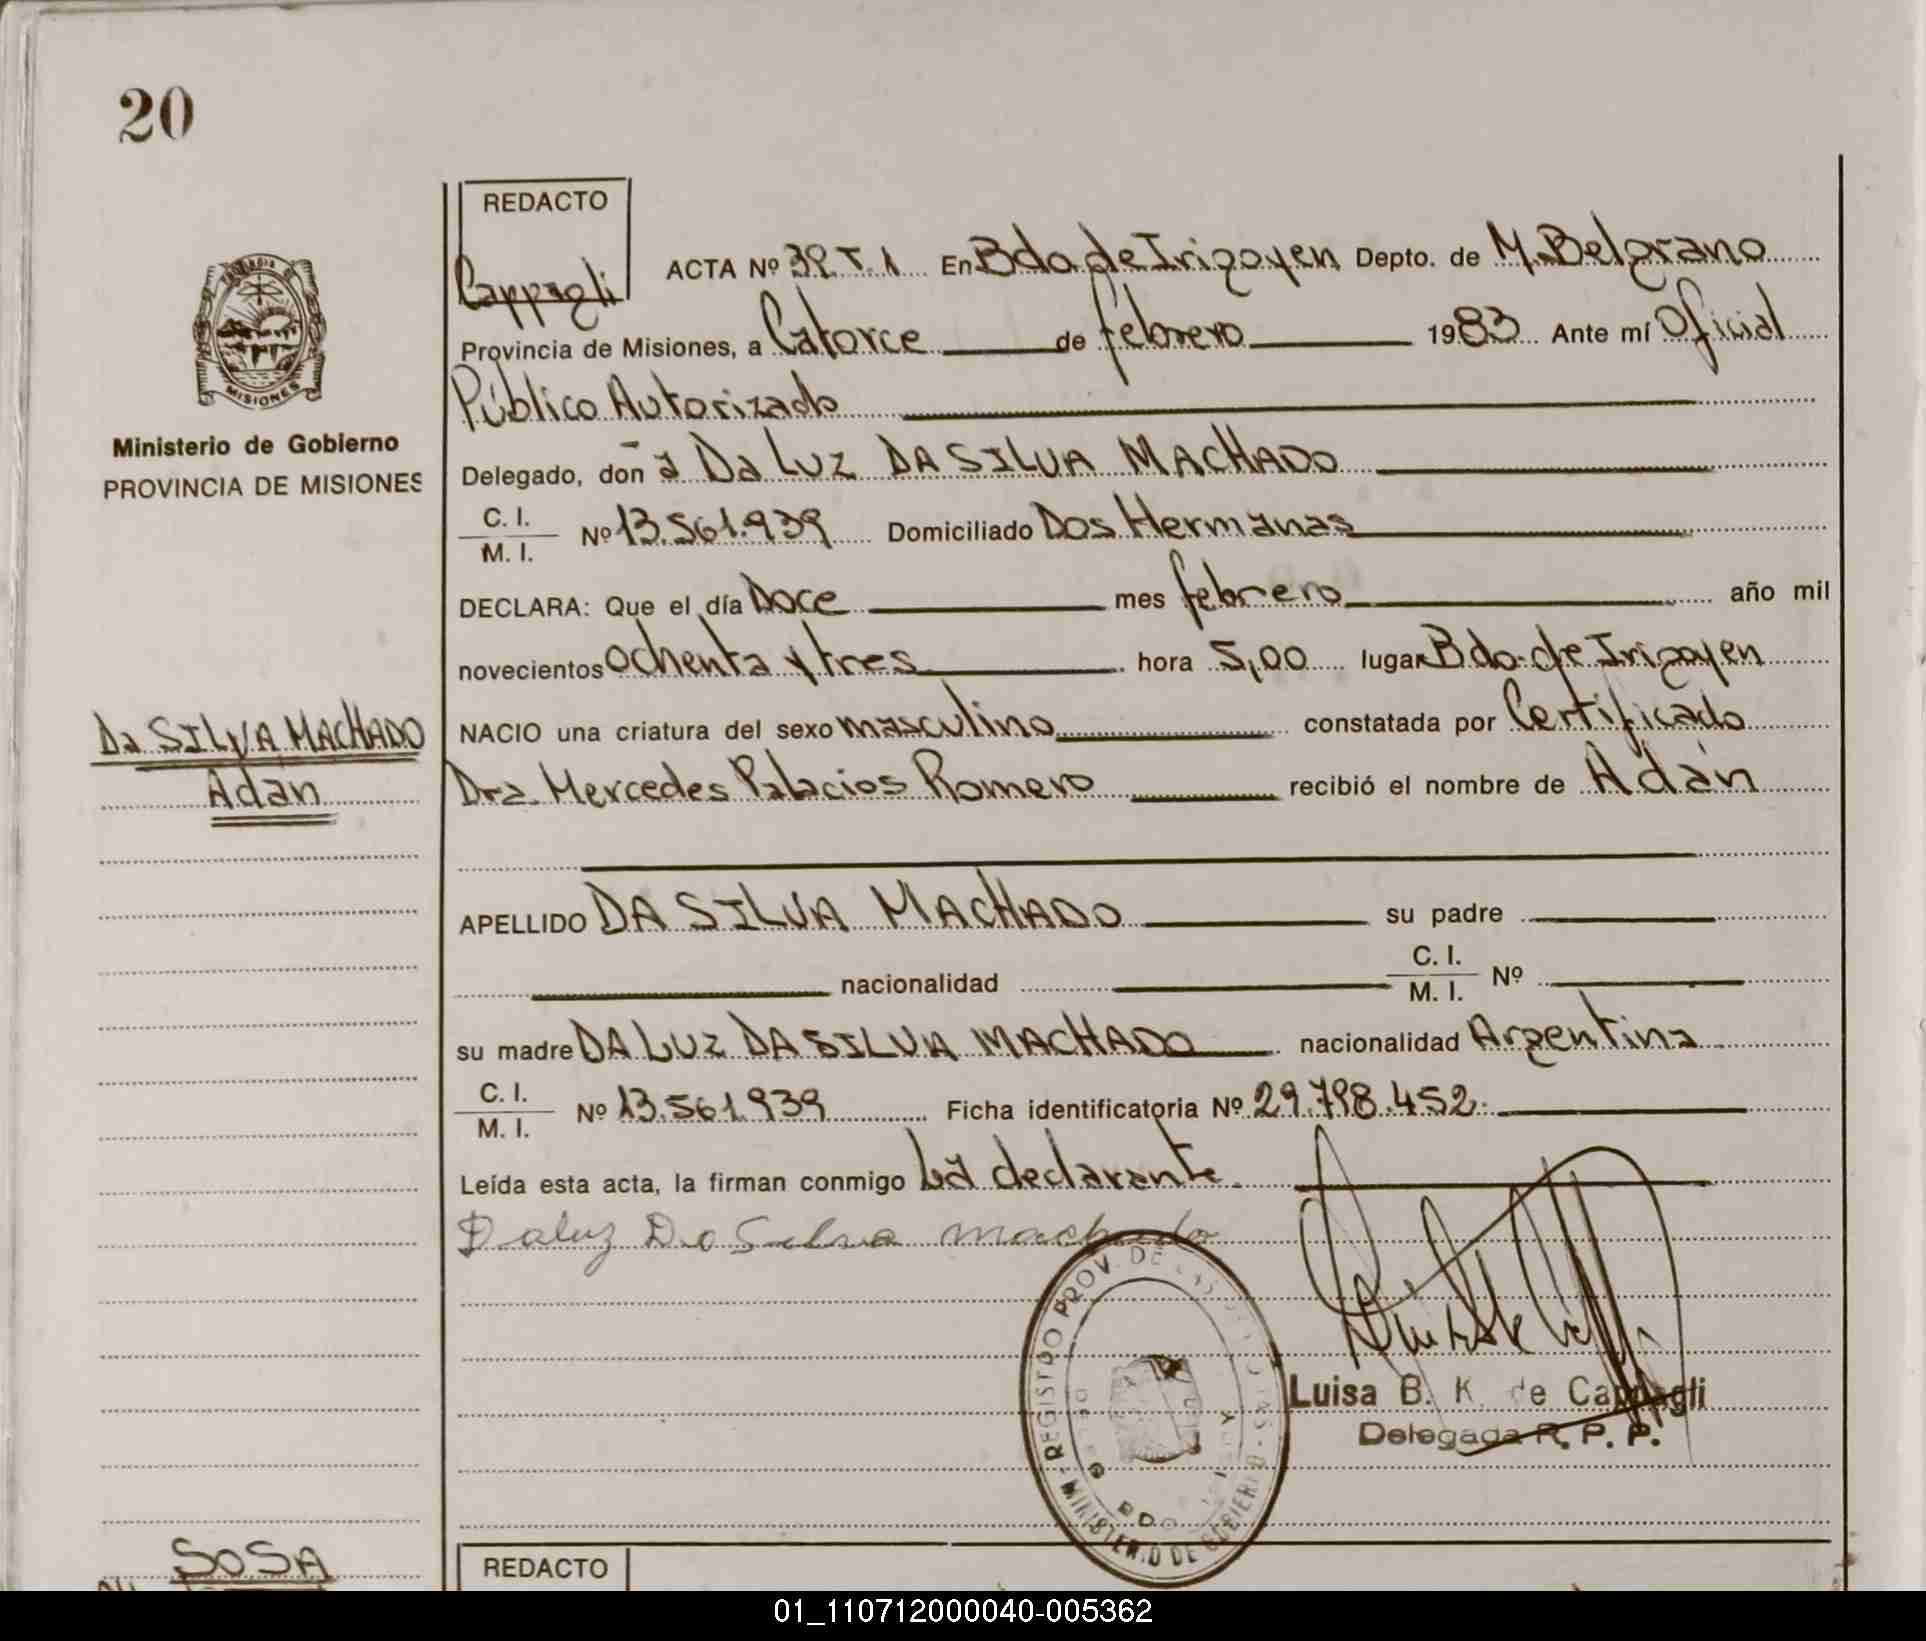 20
REDACTO
Cappagli
ACTA Nº 39 T. 1 En Bdo de Irigoyen Depto. de M. Belgrano
Provincia de Misiones, a Catorce de febrero 1983 Ante mí Oficial
Público Autorizado
Delegado, don ã Da Luz DA SILVA MACHADO
C. I.
M. I. Nº 13.561.939 Domiciliado Dos Hermanas
DECLARA: Que el día Doce mes febrero año mil
novecientos ochenta y tres hora 5,00 lugar Bdo. de Irigoyen
NACIO una criatura del sexo masculino constatada por Certificado
Dra. Mercedes Palacios Romero recibió el nombre de Adán
APELLIDO DA SILVA MACHADO su padre
nacionalidad C. I.
M. I. Nº
su madre DA LUZ DA SILVA MACHADO nacionalidad Argentina
C. I.
M. I. Nº 13.561.939 Ficha identificatoria Nº 29.798.452.
Leída esta acta, la firman conmigo La declarante.
Daluz Da Silva machado
REGISTRO PROV. DE LAS PERSONAS - MINISTERIO DE GOBIERNO
BDO
Luisa B. K. de Cappagli
Delegada R. P. P.
Ministerio de Gobierno
PROVINCIA DE MISIONES
MISIONES
Da SILVA MACHADO
Adán
SOSA
REDACTO
01_110712000040-005362